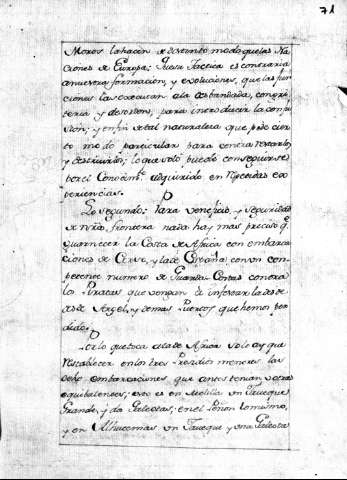 71
Moros la hacen de distinto modo que las Na
ciones de Europa: Su tactica es contraria
a nuestra formacion, y evoluciones, que las fun
ciones las executan a la desbandada, con gri
teria y desorden, para introducir la confu
sion; y en fin de tal naturaleza que pide cier
to modo particular para contrarrestarlos
y destruirlos; lo que solo puede conseguirse
por el Conocimto. adquirido en repetidas ex
periencias.
Lo segundo: Para veneficio, y seguridad
de nrã. frontera nada hay mas preciso q.e
guarnecer la Costa de Africa con embarca
ciones de Corso, y la de España, con un com
petente numero de Guarda Costas contra
los Piratas que vengan à infestarlas des
de Argel, y demas Puertos que hemos per
dido.
Por lo que toca a la de Africa solo ay que
restablecer en los tres Presidios menores las
ocho embarcaciones que antes tenian, ù otras
equibalentes, esto es en Melilla un Jaueque
Grande, y dos Galeotas, en el Peñon lo mismo,
y en Alhucemas un Jaueque y una Galeota